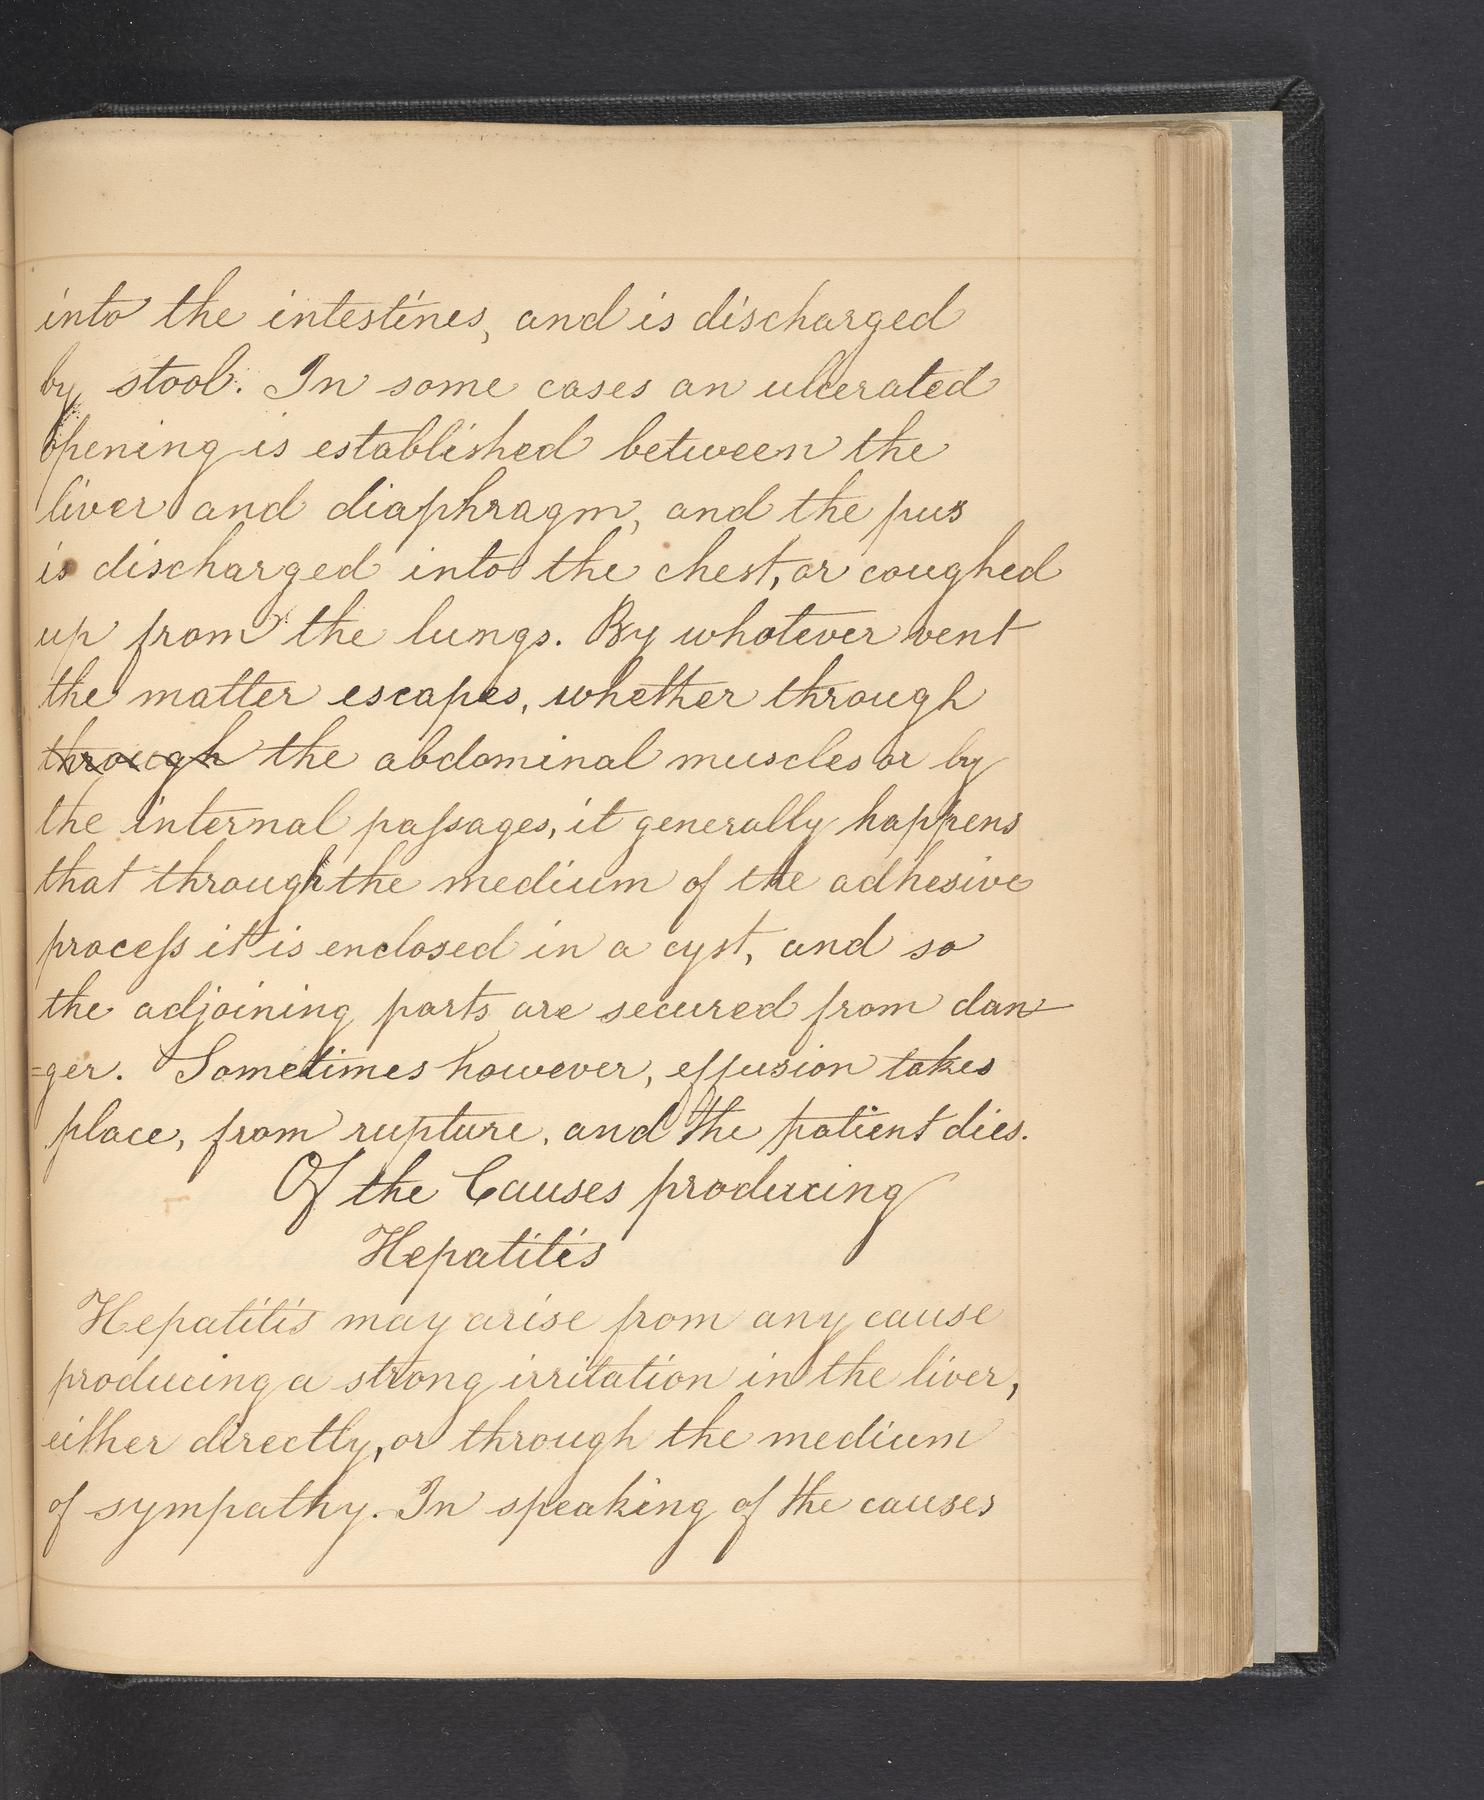 into the intestines, and is discharged
by stool. In some cases an ulcerated
opening is established between the
liver and diaphragm, and the pus
is discharged into the chest, or coughed
up from the lungs. By whatever vent
the matter escapes, whether through
through the abdominal muscles or by
the internal paſsages, it generally happens
that through the medium of the adhesive
proceſs it is enclosed in a cyst, and so
the adjoining parts are secured from dan-
=ger. Sometimes however, effusion takes
place, from rupture, and the patient dies.
Of the Causes producing
Hepatitis
Hepatitis may arise from any cause
producing a strong irritation in the liver,
either directly, or through the medium
of sympathy. In speaking of the causes